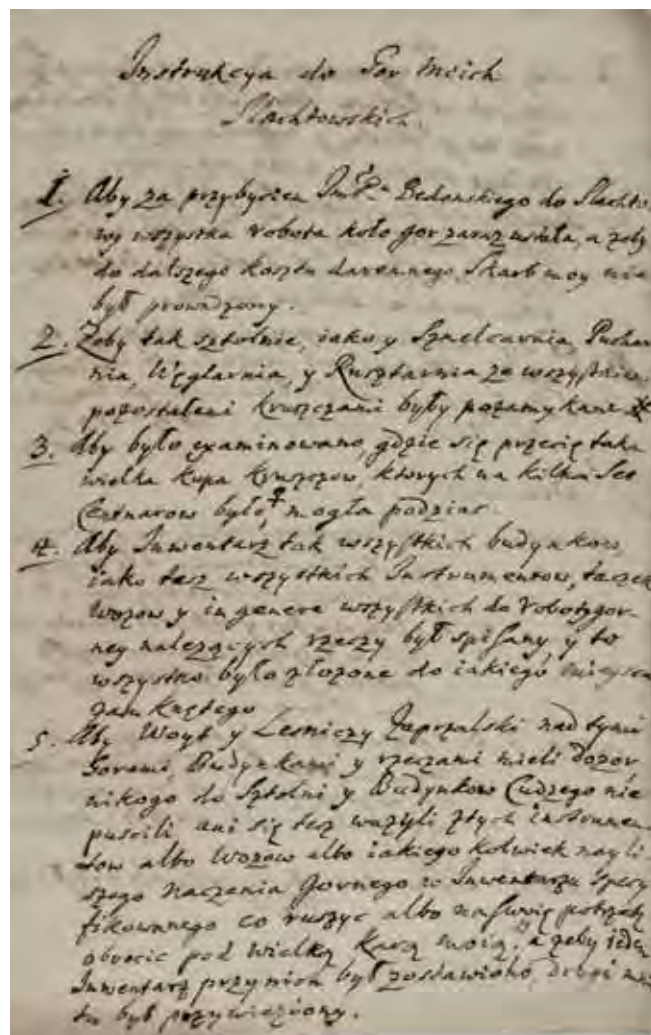 Instrukcya do Gor Moich
Slachtowskich.
1. Aby za przybyciem Im Pa Bedonskiego do Slachto
wy wszystka robota koło gor zaraz ustała, a żeby
do dalszego kosztu daremnego Skarb moy nie
był prowadzony.
2. Żeby tak sztolnie, iako y Szmelcarnia, Puchar
nia, Węglarnia, y Rusztarnia ze wszystkiemi
pozostałemi kruszczami były pozamykane
3. Aby było examinowano, gdzie się przecię taka
wielka kupa kruszczow, ktorych na kilka Set
Centnarow było, mogła podziac.
4. Aby Inwentarz tak wszystkich budynkow,
iako tesz wszystkich Instrumentow, taczek
wozow y in genere wszystkich do roboty gor-
ney nalezących rzeczy był spisany, y to
wszystko było złozone do iakiego mieysca
zamknętego
5. Aby Woyt y Lesniczy Zaprzalski nad tymi
Gorami, Budynkami y rzeczami mieli dozor
nikogo do Sztolni y Budynkow Cudzego nie
puscili, ani się tesz wazyliztych instrumen
tow albo wozow albo iakiego kolwiek nayli
szego naczenia Gornego w Inwentarzu specy
fikowanego co ruszyc albo na swoię potrzebę
obrocic pod wielką karą moią, a zeby ieden
Inwentarz przy nich był zostawiony, drugi mi
tu był przywieziony.